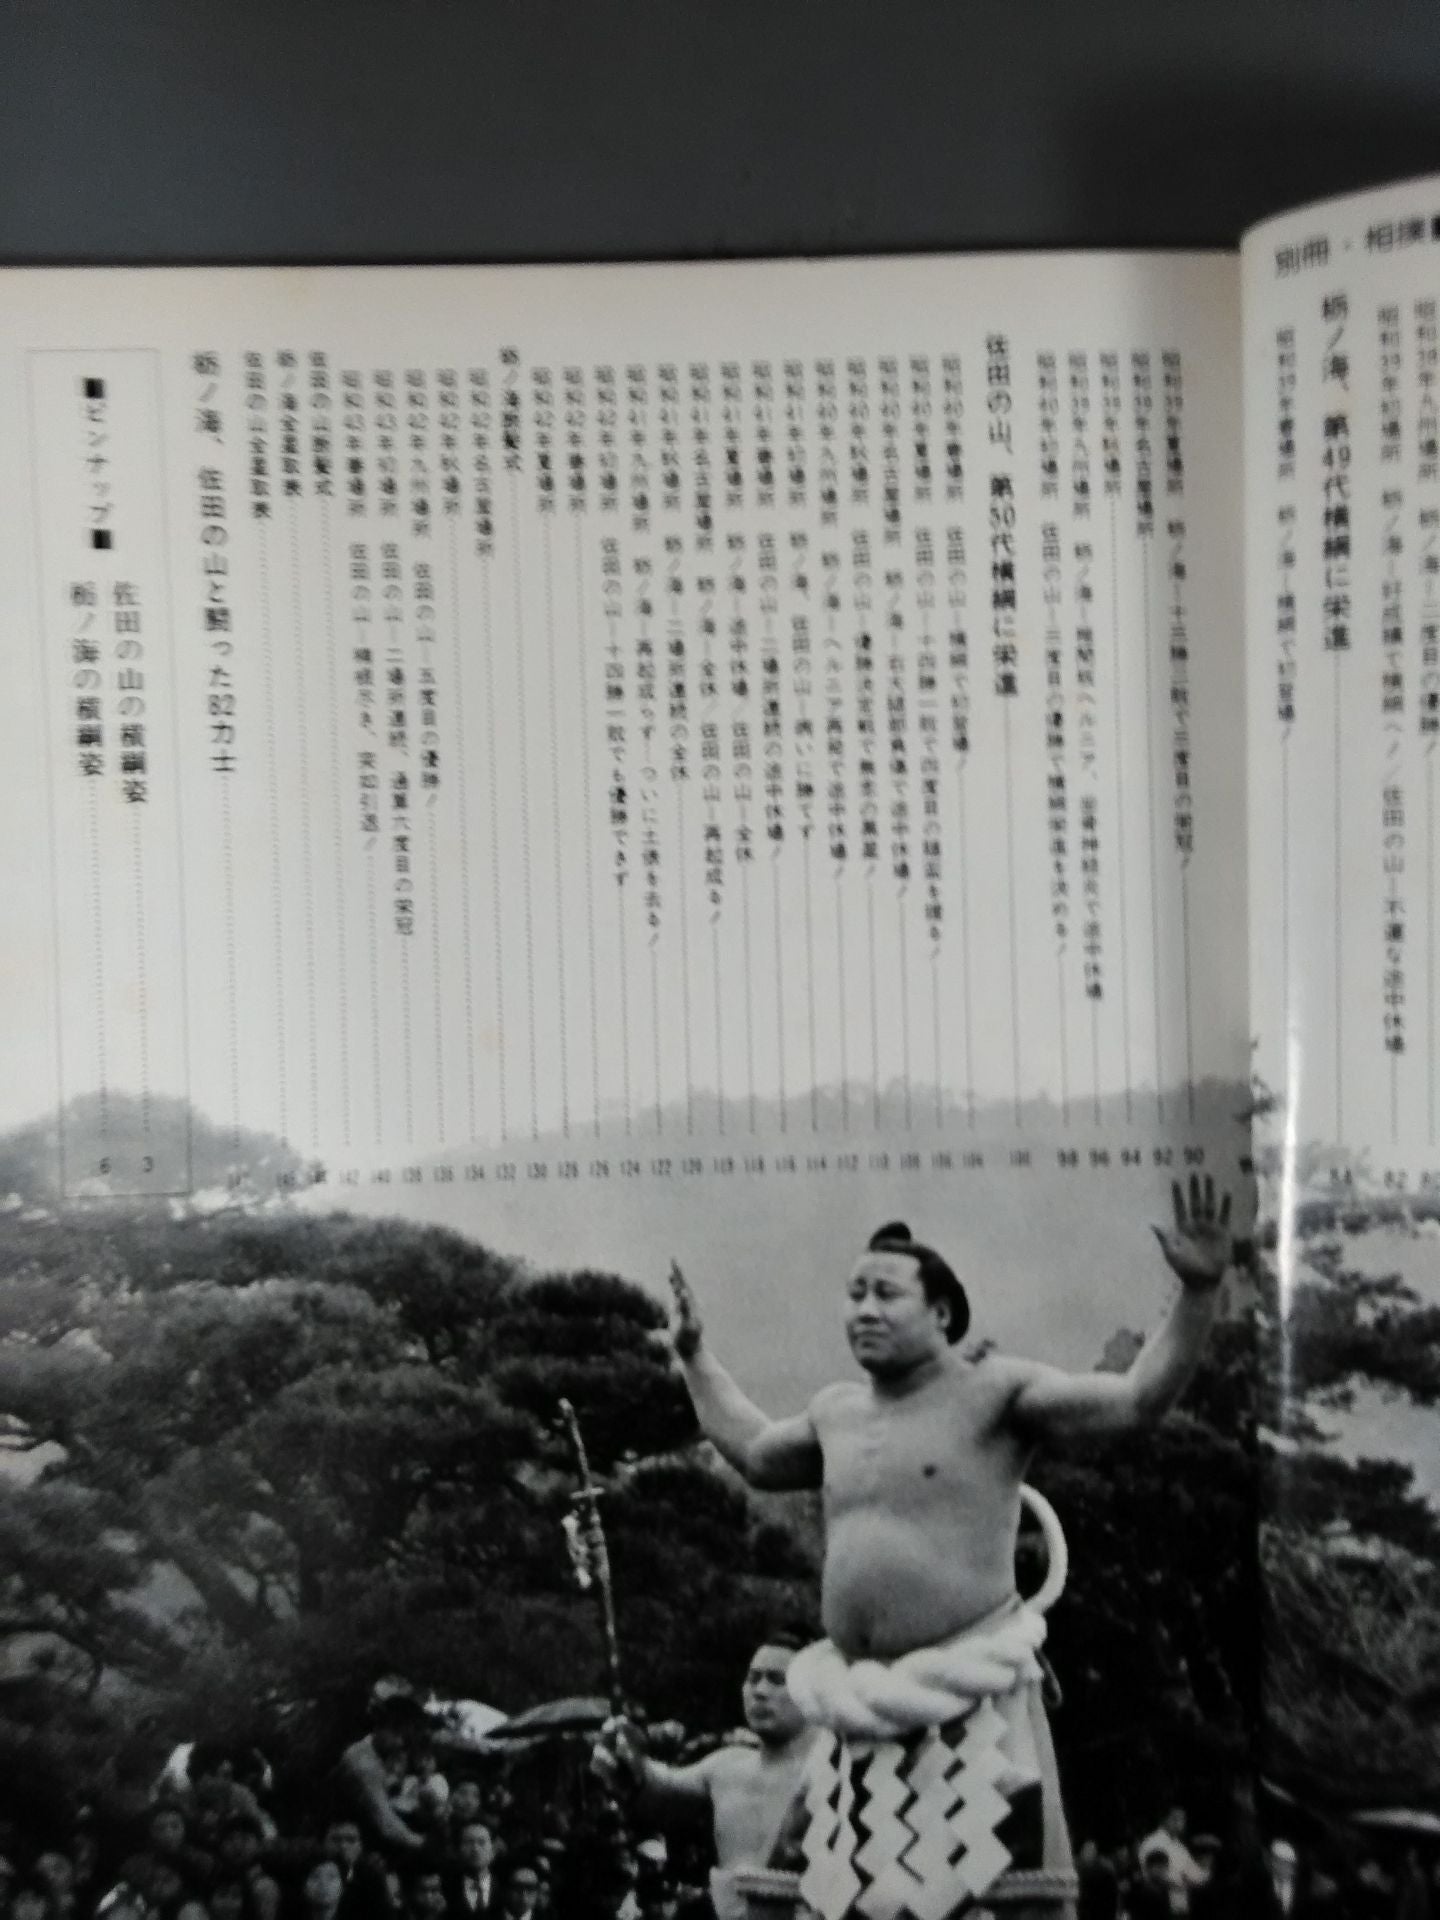 別冊・相撲
昭和38年九州場所 栃ノ海―二度目の優勝! 80
昭和39年初場所 栃ノ海―好成績で横綱へ!/佐田の山―不運な途中休場 82
栃ノ海、第49代横綱に栄進 84
昭和39年春場所 栃ノ海―横綱で初登場!
昭和39年夏場所 栃ノ海―十三勝二敗で三度目の栄冠! 90
昭和39年名古屋場所 92
昭和39年秋場所 94
昭和39年九州場所 栃ノ海―椎間板ヘルニア、坐骨神経炎で途中休場 96
昭和40年初場所 佐田の山―三度目の優勝で横綱栄進を決める! 98
佐田の山、第50代横綱に栄進 100
昭和40年春場所 佐田の山―横綱で初登場! 104
昭和40年夏場所 佐田の山―十四勝一敗で四度目の賜盃を握る! 106
昭和40年名古屋場所 栃ノ海―右大腿部負傷で途中休場! 108
昭和40年秋場所 佐田の山―優勝決定戦で無念の黒星! 110
昭和40年九州場所 栃ノ海―ヘルニア再発で途中休場! 112
昭和41年初場所 栃ノ海、佐田の山―病いに勝てず 114
昭和41年春場所 佐田の山―二場所連続の途中休場! 116
昭和41年夏場所 栃ノ海―途中休場/佐田の山―全休 118
昭和41年名古屋場所 栃ノ海―全休/佐田の山―再起成る! 119
昭和41年秋場所 栃ノ海―二場所連続の全休 120
昭和41年九州場所 栃ノ海―再起成らず、ついに土俵を去る! 122
昭和42年初場所 佐田の山―十四勝一敗でも優勝できず 124
昭和42年春場所 126
昭和42年夏場所 128
栃ノ海断髪式 130
昭和42年名古屋場所 132
昭和42年秋場所 134
昭和42年九州場所 佐田の山―五度目の優勝! 136
昭和43年初場所 佐田の山―二場所連続、通算六度目の栄冠 138
昭和43年春場所 佐田の山―精根尽き、突如引退! 140
佐田の山断髪式 142
栃ノ海全星取表
佐田の山全星取表
栃ノ海、佐田の山と闘った82力士
■ピンナップ■
佐田の山の横綱姿 3
栃ノ海の横綱姿 6